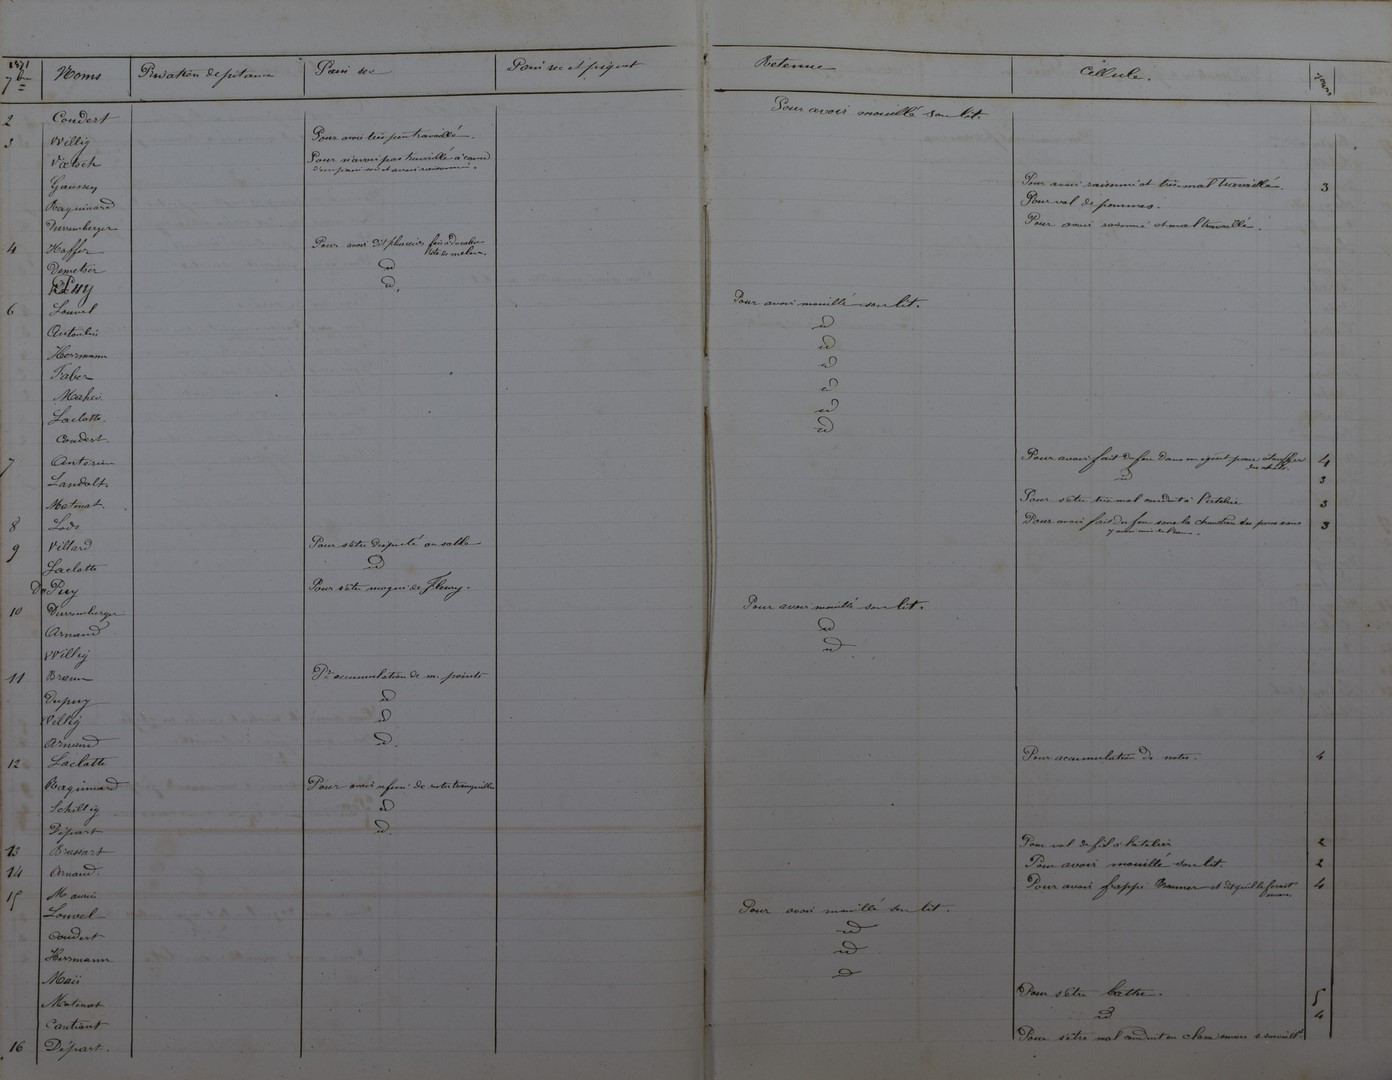 1871
7bre
Noms
Privation de pitance
Pain sec
Pain sec et piquet
Retenue
Cellule.
Jours
2 Coudert Pour avoir mouillé son lit
3 Willig Pour avoir très peu travaillé.
Vœtsch Pour n'avoir pas travaillé à cause
d'un pain sec et avoir raisonné.
Gaussey Pour avoir raisonné et très mal travaillé. 3
Raguinard Pour vol de pommes.
Durremberger Pour avoir raisonné et mal travaillé.
4 Hoffer Pour avoir dit plusieurs fois
de melon.
Demetser id
id.
6 Louvel Pour avoir mouillé son lit.
Antonin id
Herrmann id
Faber id
Maheu id
Laclotte id
Coudert. id
7 Antonin Pour avoir fait du feu dans un égout pour étouffer 4
Landolt. id 3
Matenat. Pour s'être très mal conduit à l'atelier 3
8 Lods Pour avoir fait du feu sous la chaudière des porcs sans 3
y avoir mis de l'eau.
9 Villard Pour s'être disputé au sable
Laclotte id
Du Puy Pour s'être moqué de Fleury.
10 Durremberger Pour avoir mouillé son lit.
Arnaud id
Willig id
11 Braun Pr accumulation de m. points
Dupuy id
Willig id
Arnaud id.
12 Laclotte Pour accumulation de notes. 4
Raguinard Pour avoir refusé de rester tranquille
Schillig id
Départ id.
13 Brussart Pour vol de fil à l'atelier 2
14 Arnaud. Pour avoir mouillé son lit. 2
15 Maurin Pour avoir frappé et dit qu'il le ferait 4
encore
Louvel Pour avoir mouillé son lit.
Coudert id
Herrmann id
Maïi id
Matenat Pour s'être battu. 5
Cantiant id 4
16 Départ. Pour s'être mal conduit en classe